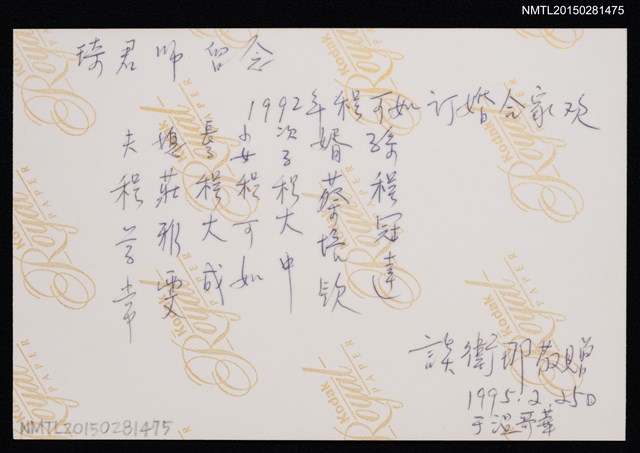 NMTL20150281475
琦君师留念
1992年程可如订婚合家欢
夫程芳棠
媳莊雅雯
長子程大成
小女程可如
次子程大中
婿蔡培欽
孫程冠達
談衛那敬贈
1995.2.25日
于温哥華
Kodak
Royal
PAPER
NMTL20150281475